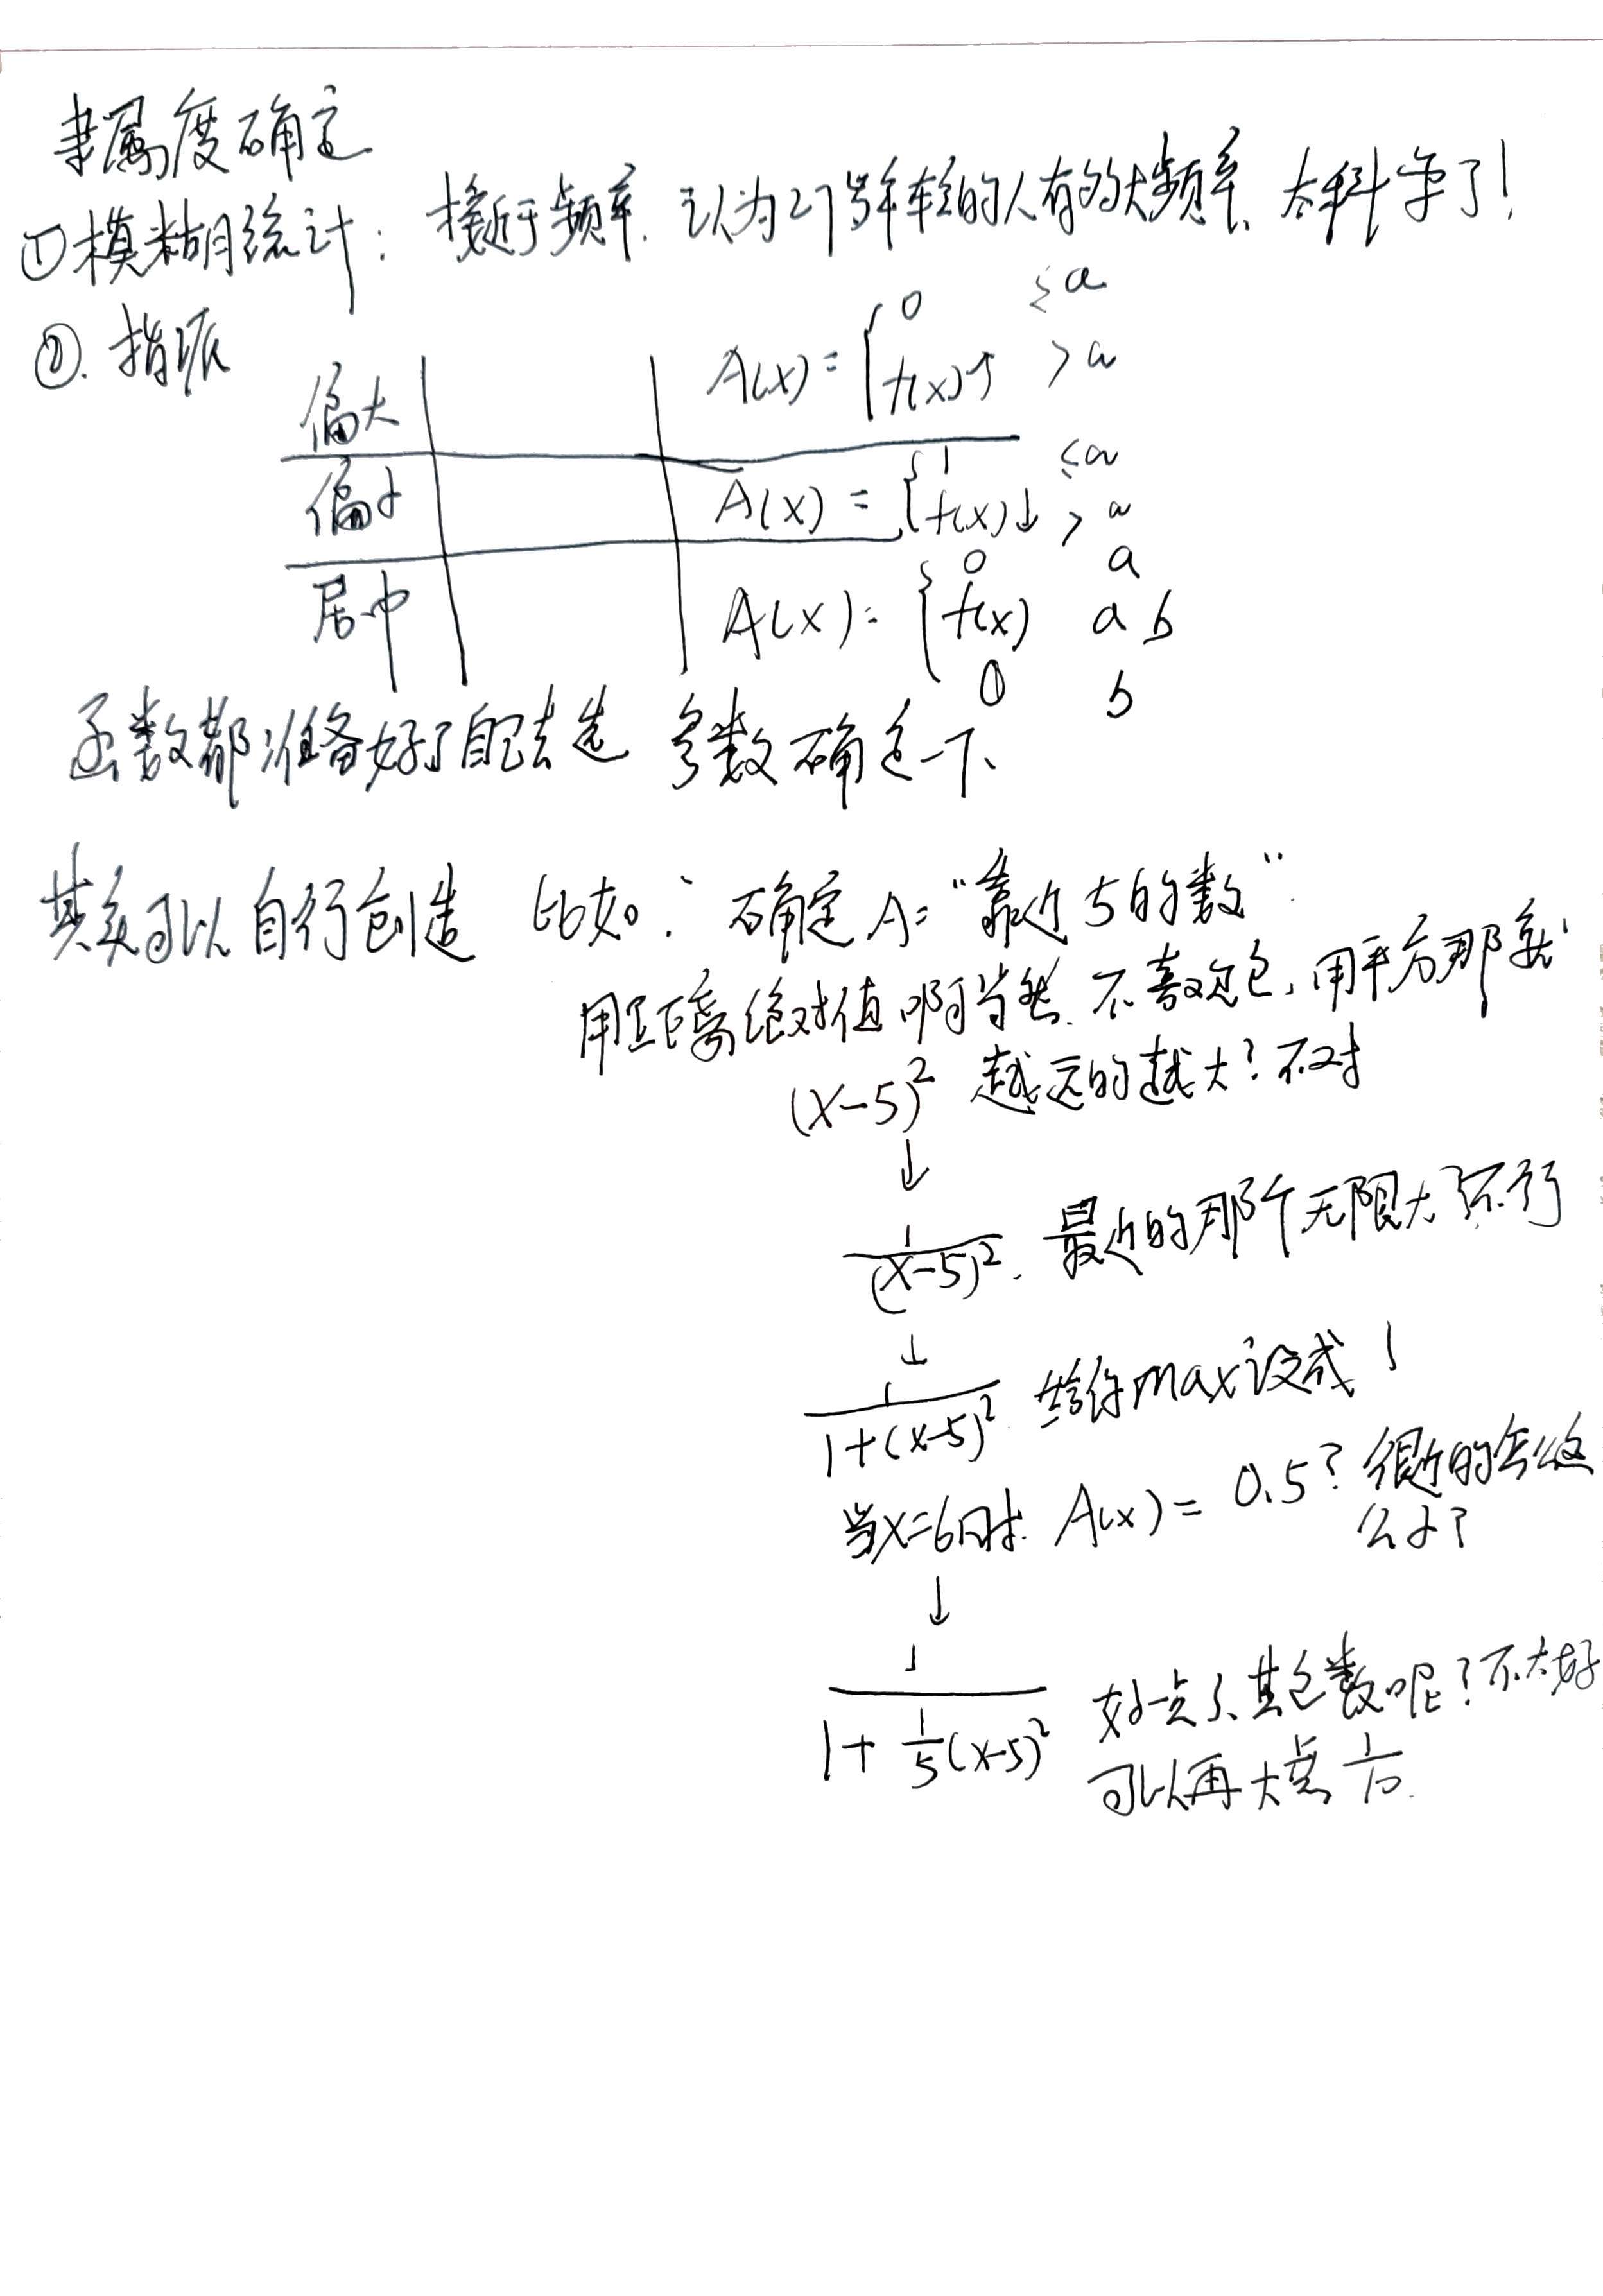 隶属度确定
①模糊统计: 接近于频率. 认为27岁年轻的人有多大频率、太科学了!
②. 指派
偏大 A(x)= { 0 ≤a
f(x)↑ >a
偏小 A(x) = { 1 ≤a
f(x)↓ >a
居中 A(x)= { 0 a
f(x) a b
0 b
函数都准备好了自己去选 参数确定一下、
其实可以自行创造 比如: 确定A="靠近5的数"
用距离绝对值啊当然. 不喜欢它, 用平方那就
(x-5)² 越远的越大? 不对
↓
1/(x-5)². 最近的那个无限大了不行
↓
1/(1+(x-5)²) 给你max设成1
当x=6时. A(x) = 0.5? 很近的怎么这
么小?
↓
1/(1+1/5(x-5)²) 好一点了、其它数呢? 不太好
可以再大点 1/10.